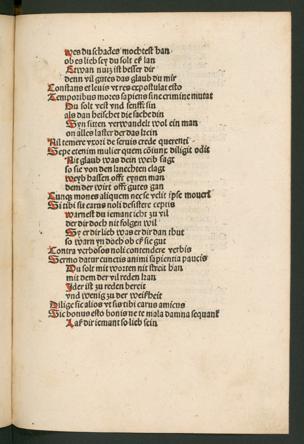 Wes du schades mochtest han
ob es lieb sey du solt eß lan
Etwan nutz ist besser dir
denn vil gutes das glaub du mir
Constans et leuis vt res expostulat esto
Temporibus mores sapiens sine crimine mutat
Du solt vest vnd senfft sin
als dan heischet die sache din
Syn sitten verwandelt wol ein man
on alles laster der das kein
Nil temere vxori de seruis crede querenti
Sepe etenim mulier quem coiunx diligit odit
Nit glaub was dein weib sagt
so sie von den knechten clagt
Weyb hassen offt eynen man
dem der wirt offt gutes gan
Cumq mones aliquem nec se velit ipse moueri
Si tibi sit carus noli desistere ceptis
Warnest du iemant icht zu vil
der dir doch nit folgen wil
Sy er dir lieb was er dir dan thut
so warn yn doch ob eß sie gut
Contra verbosos noli contendere verbis
Sermo datur cunctis animi sapientia paucis
Du solt mit worten nit streit han
mit dem der vil reden kan
Ider ist zu reden bereit
vnd wenig zu der weißheit
Dilige sic alios vt sis tibi carus amicus
Sic bonus esto bonis ne te mala damna sequant
Laß dir iemant so lieb sein